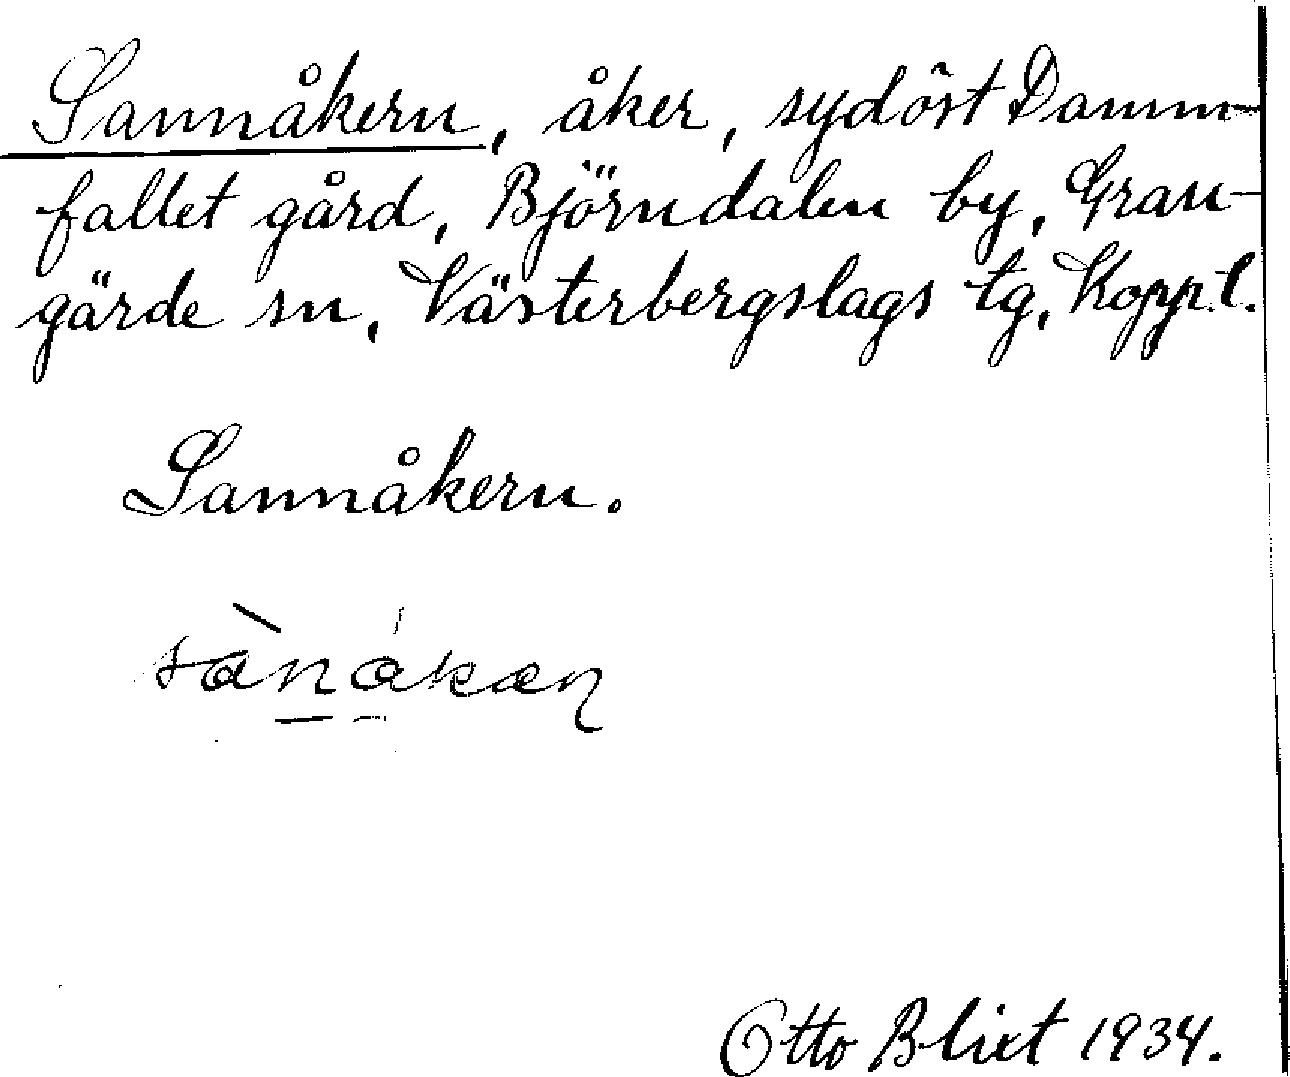 Sannåkern, åker, sydöst Damm-
fallet gård, Björndalen by, Gran-
gärde sn, Västerbergslags tg, Kopp. l.
Sannåkern.
sànåkæɳ
Otto Blixt 1934.